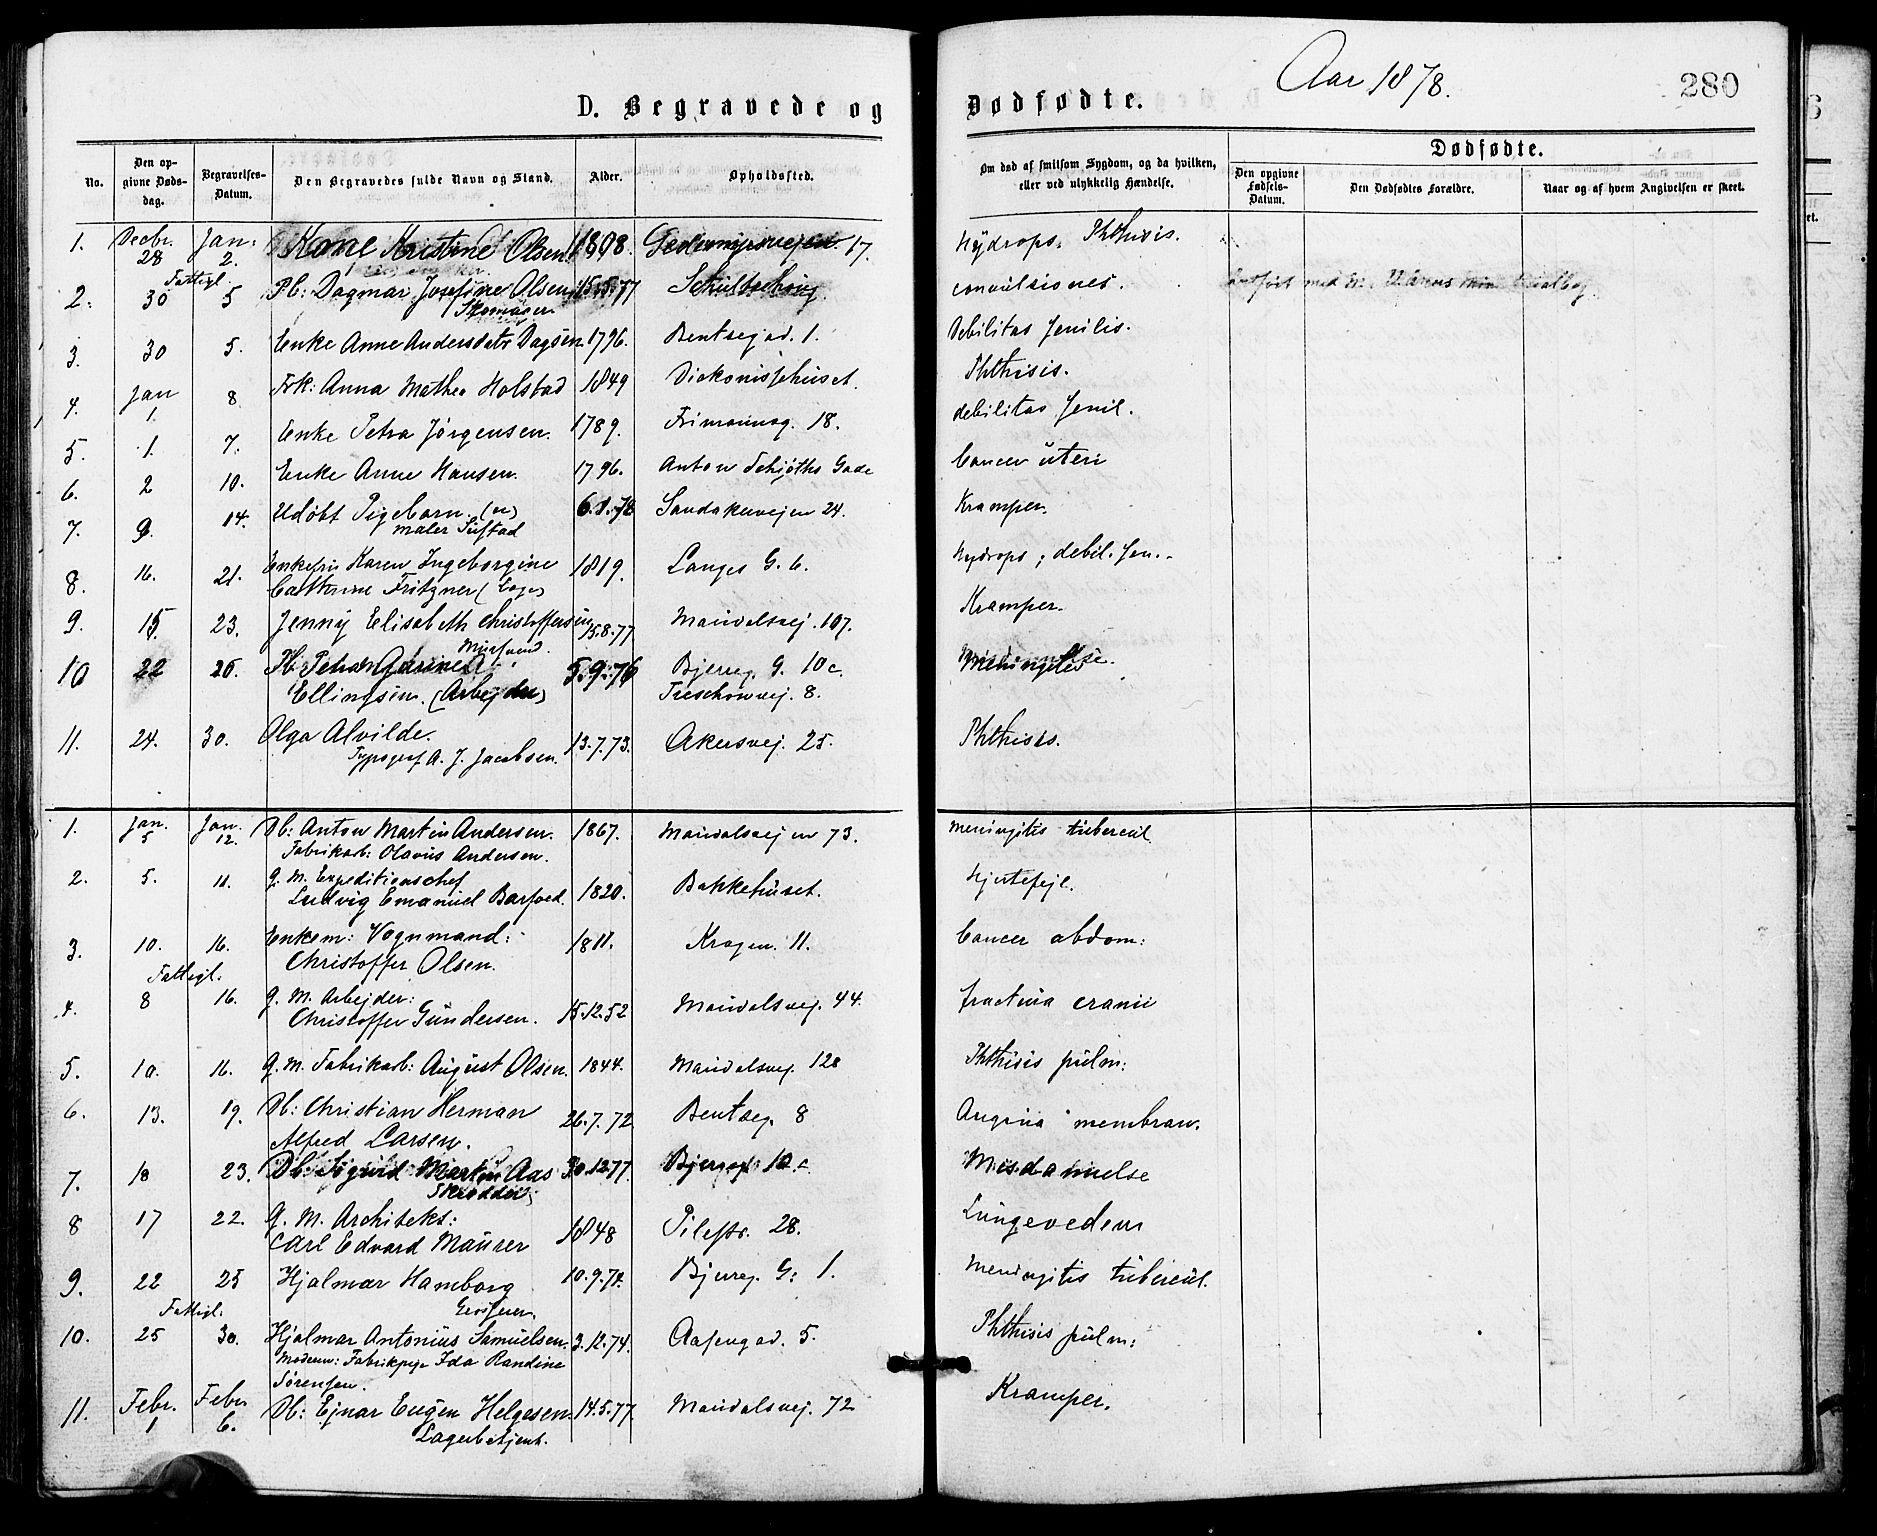 Aar 1878.
280
D. Begravede og
Dødfødte.
No.
Den opgivne Dødsdag.
Begravelses-Datum.
Den Begravedes fulde Navn og Stand.
Alder.
Opholdssted.
Om død af smitsom Sygdom, og da hvilken, eller ved ulykkelig Hændelse.
Dødfødte.
Den opgivne Fødsels-Datum.
Den Dødfødtes Forældre.
Naar og af hvem Angivelsen er skeet.
1. Decbr. 28 Jan: 2. Kone Kristine Olsen 1808. 17. Hydrops. Phthisis.
Fattigl.
2. 30 5 Pb: Dagmar Josefine Olsen 15.5.77 convulsiones.
3. 30 5. Enke Anne Andersdatr Dagsen. 1796. Bentsegad. 1. Debilitas senilis.
4. Jan 1. 8 Frk: Anna Mathea Holstad 1849 Diakonissehuset. Phthisis.
5. 1. 7. Enke Petra Jørgensen. 1789. Frimannsg. 18. debilitas senil.
6. 2 10. Enke Anne Hansen. 1796. Anton Schjøths Gade Cancer uteri
7. 9. 14. Udøbt Pigebarn. Sandakerveien 24. Kramper.
maler
8. 16. 21. Karen Ingeborgine 1819. Langes G. 6. Hydrops, debil. sen.
Cathrine Fritzner
9. 15. 23. Jenny Elisabeth Christoffersen 15.8.77 Maridalsvej. 107. Kramper.
Mursvend.
10 22 26. Pb. Petra 5.9.76 Bjerreg. G. 10c.
Ellingsen. (Arbejder) Treschowvej. 8.
11. 24. 30. Olga Alvilde. 13.7.73. Akersvej. 25. Phthisis.
Typograf A. J. Jacobsen.
1. Jan. 5 Jan. 12. Db: Anton Martin Andersen. 1867. Maridalsvejen 73. meningitis tubercul.
Fabrikarb: Olavus Andersen.
2. 5. 11. g. M. Expeditionschef 1820. Bakkehuset. Hjertefejl.
Ludvig Emanuel Barfoed.
3. 10. 16. Enkem: Vognmand: 1811. Krogen. 11. Cancer abdom:
Christoffer Olsen.
Fattigl.
4. 8 16. g. M. Arbejder: 15.12.52 Maridalsvej. 44. fractura cranii
Christoffer Gundersen.
5. 10. 16. g. M. Fabrikarb: August Olsen. 1844. Maridalsvej. 128 Phthisis pulm:
6. 13. 19. Db: Christian Herman 26.7.72 Bentseg. 8 Angina membran.
Alfred Larsen.
7. 18 23. Db: Sigurd Martin Aas 30.12.77. 10 c Misdannelse
Skrædder
8 17 22. g. M. Architekt: 1848 Pilestr. 28. Lungeoedem
Carl Edvard Maurer
9. 22 25 Hjalmar Hamborg 10.9.74. Bjerreg. G: 1. Meningitis tubercul.
Fattigl.
10. 25 30. Hjalmar Antonius Samuelsen. 3.12.74. Aasengad. 5. Phthisis pulm:
Moderen: Fabrikpige Ida Randine
Sørensen.
11. Febr. 1 Febr. 6. Db: Ejnar Eugen Helgesen. 14.5.77. Maridalsvej. 72 Kramper.
Lagerbetjent.